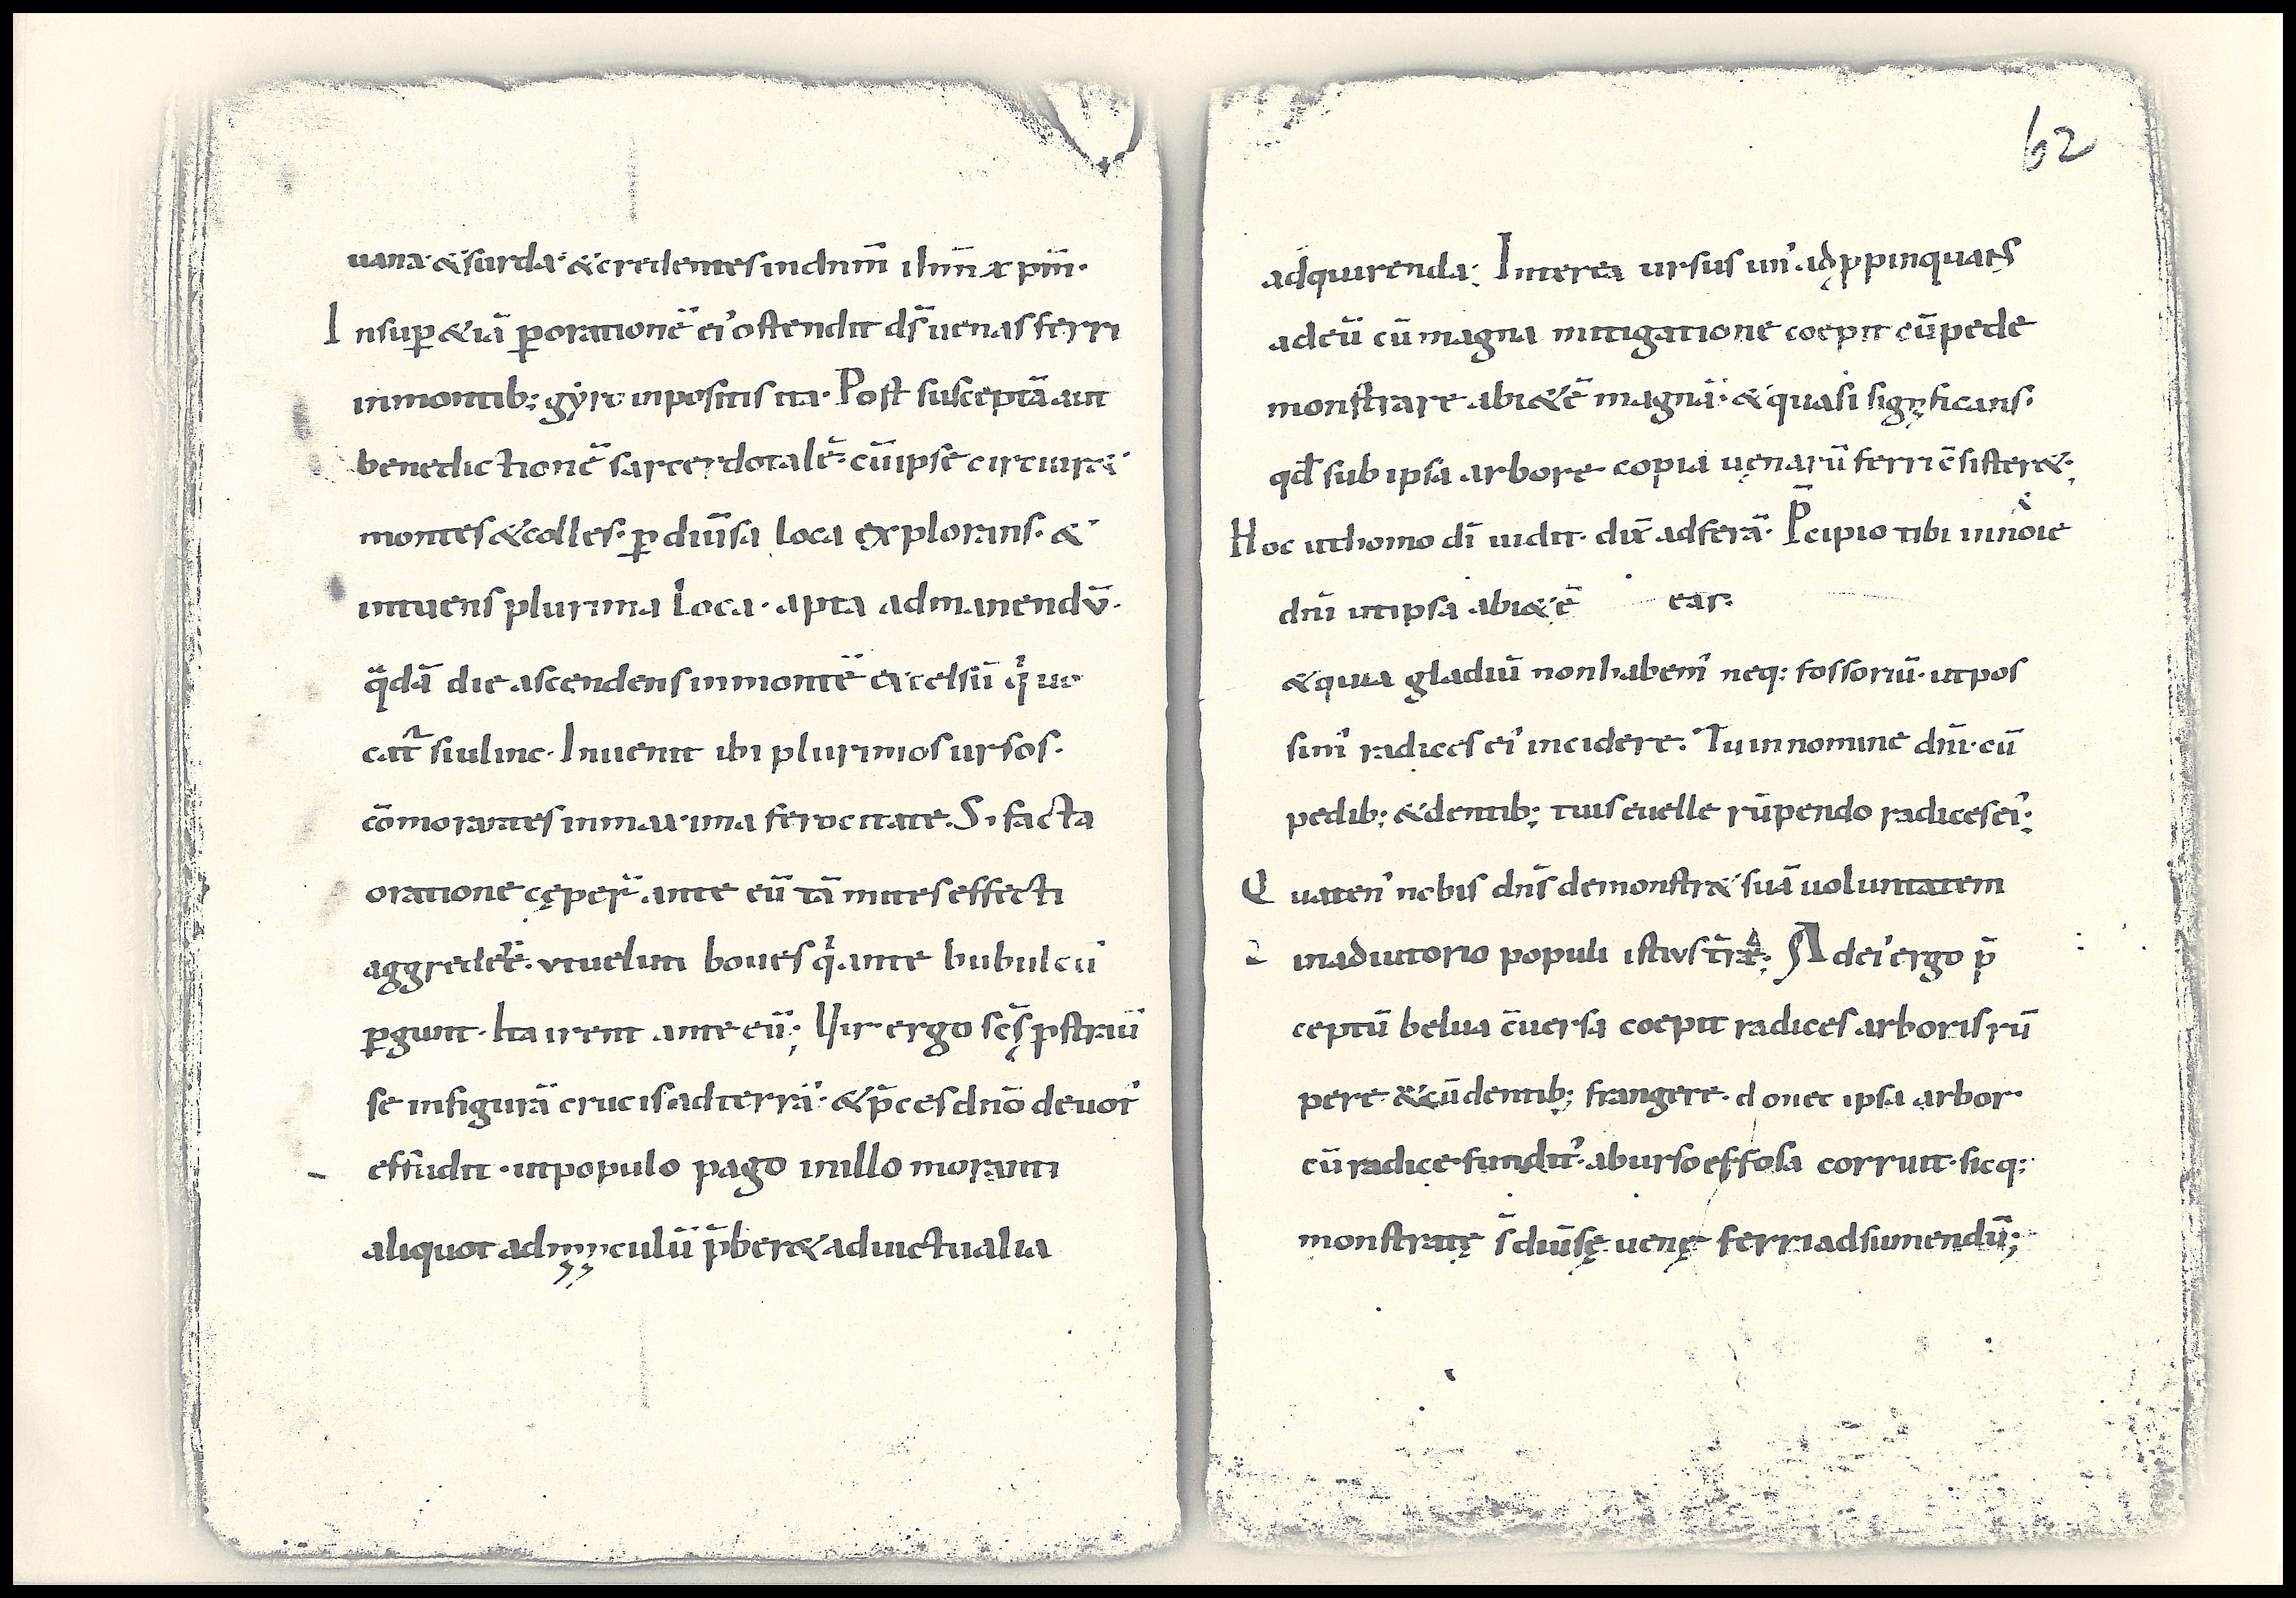 uana· & surda· & credentes in dnm̄ ihm̄ xpm̄·
Insup̱ & iā p̱ orationē ei᾽ ostendit ds̄ uenas ferri
in montib; gyro inpositis ita· Post susceptā aut
benedictionē sacerdotalē· cū ipse circuir&
montes & colles· p̱ diūsa loca explorans· &
intuens plurima loca· apta ad manendū·
q̇dā die ascendens in montē excelsū q̇ uo
cat᾽ siuline· Inuenit ibi plurimos ursos·
cōmorantes in maxima ferocitate. Si facta
oratione cęper̄ ante eū tā mites effecti
aggredere· ut uelut boues q̇ ante bubulcū
p̱gunt· Ita irent ante eū; Uir ergo scs̄ pstrauit
se in figurā crucis ad terrā· & p̄ces dnō deuot᾽
effudit· ut populo pago in illo moranti
aliquot adminiculū p̄ber& ad uictualia
62
adquirenda; Interea ursus un᾽ adpropinquans
ad eū cū magna mitigatione coepit cū pede
monstrare abi&ē magnā· & quasi significans·
qđ sub ipsa arbore copia uęnarū ferri ēsister&;
Hoc ut homo dī uidit· dix̄ ad ferā· P̄cipio tibi in nōie
dnī ut ipsa abi&ē ear·
& quia gladiū non habem᾽ neq; fossoriū· ut pos
sim᾽ radices ei᾽ incidere· Tu in nomine dnī· cū
pedib; & dentib; tuis euelle rūpendo radices ei᾽;
Quaten᾽ nobis dns̄ demonstr& suā uoluntatem
in adiutorio populi istius trē; Ad ei᾽ ergo p̄
ceptū belua c̄uersa coepit radices arboris rū
pere & cū dentib; frangere· donec ipsa arbor
cū radice fundit᾽· ab urso effosa corruit· sicq;
monstratę s̄ diūsę uenę ferri ad sumendū;